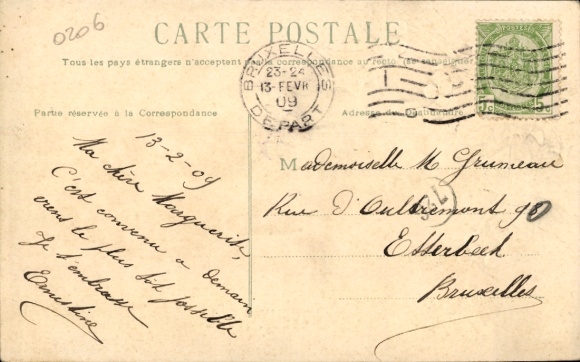 0206
CARTE POSTALE
Tous les pays étrangers n'acceptent pas la correspondance au recto (se renseigner
BRUXELLES
23-24
13-FEVR
09
DEPART
Partie réservée à la Correspondance
Adresse du Destinataire
13-2-09
Ma chère Marguerite,
C'est convenu a demain
viens le plus tôt possible
Je t'embrasse
Ernestine
Mademoiselle M Grumeau
Rue d'Oultremont 90
Etterbeek
Bruxelles